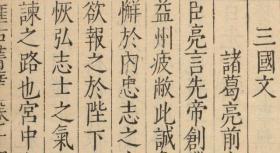 三國文
諸葛亮前
臣亮言先帝創
益州疲敝此誠
懈於內忠志之
欲報之於陛下
恢弘志士之氣
諫之路也宮中